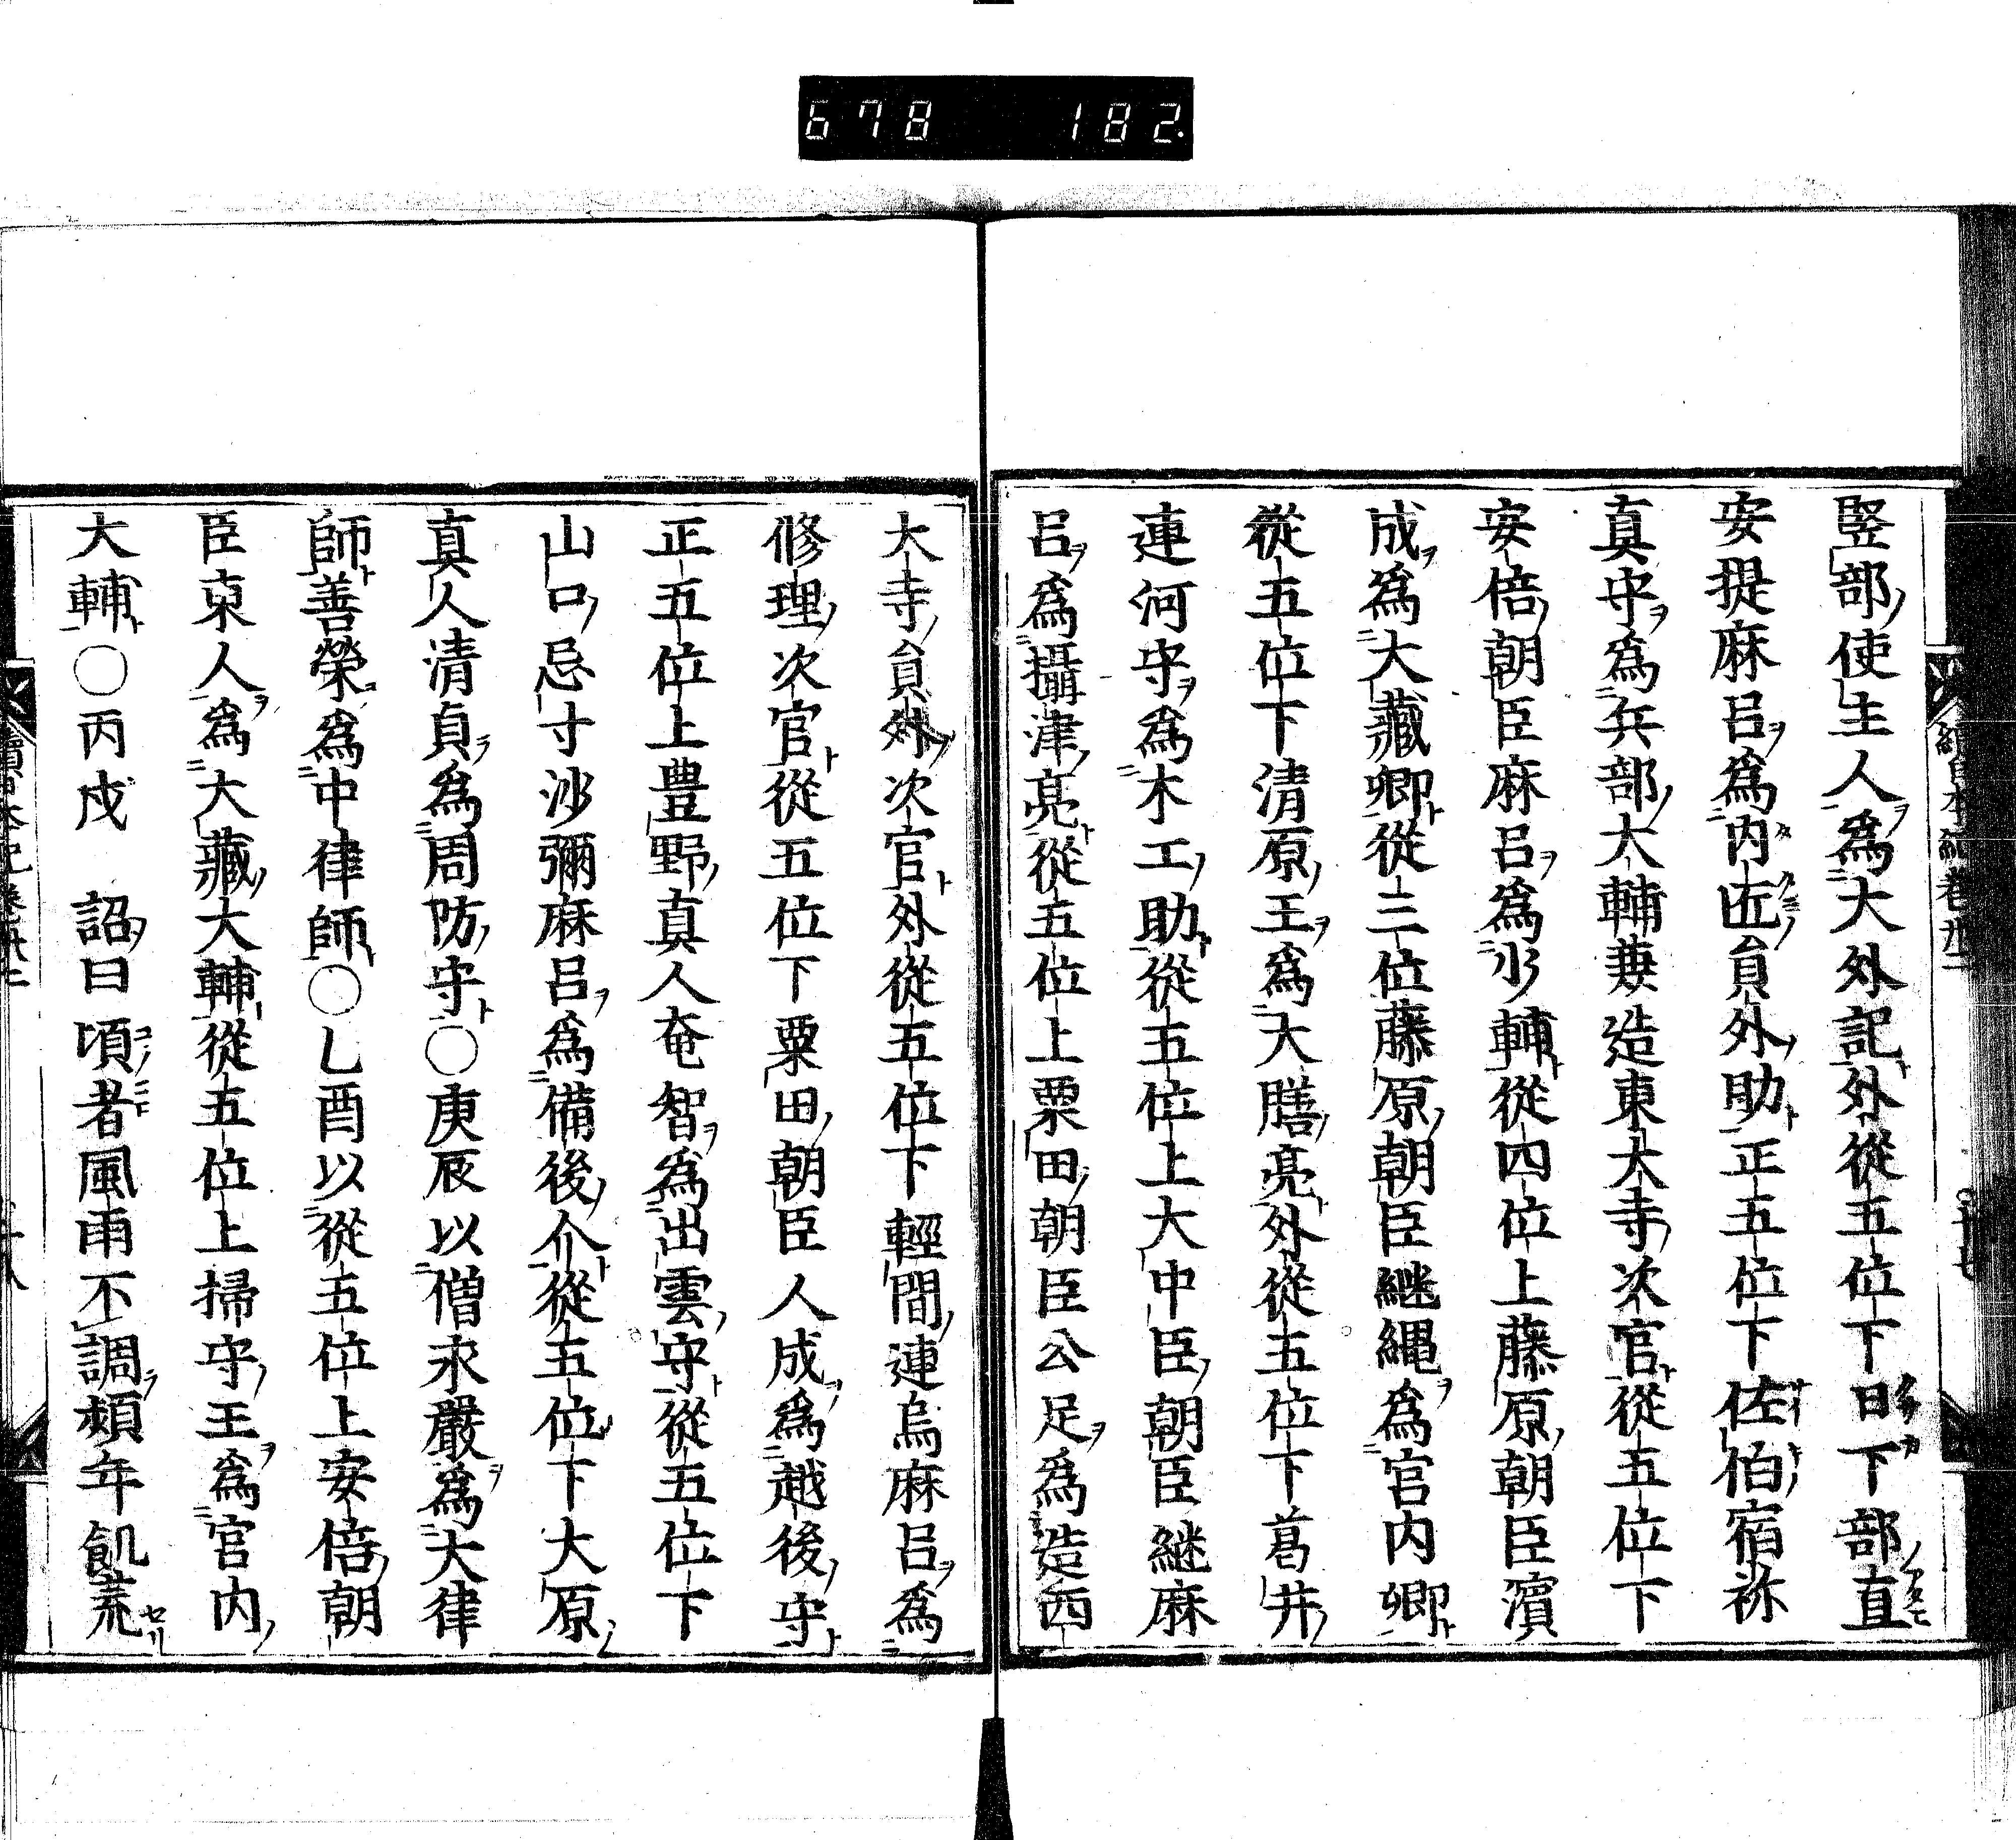 678 182
竪部使主人爲大外記外從五位下日下部直
安提麻呂爲内匠員外助正五位下佐伯宿祢
真守爲兵部大輔兼造東大寺次官從五位下
安倍朝臣麻呂爲少輔從四位上藤原朝臣濱
成爲大藏卿從三位藤原朝臣継縄爲宮内卿
從五位下清原王爲大膳亮外從五位下葛井
連河守爲木工助從五位上大中臣朝臣継麻
呂爲攝津亮從五位上粟田朝臣公足爲造西
大寺員外次官外從五位下輕間連烏麻呂爲
修理次官從五位下粟田朝臣人成爲越後守
正五位上豊野真人奄智爲出雲守從五位下
山口忌寸沙彌麻呂爲備後介從五位下大原
真人清貞爲周防守○庚辰以僧永嚴爲大律
師善榮爲中律師○乙酉以從五位上安倍朝
臣東人爲大藏大輔從五位上掃守王爲宮内
大輔○丙戌 詔曰頃者風雨不調頻年飢荒